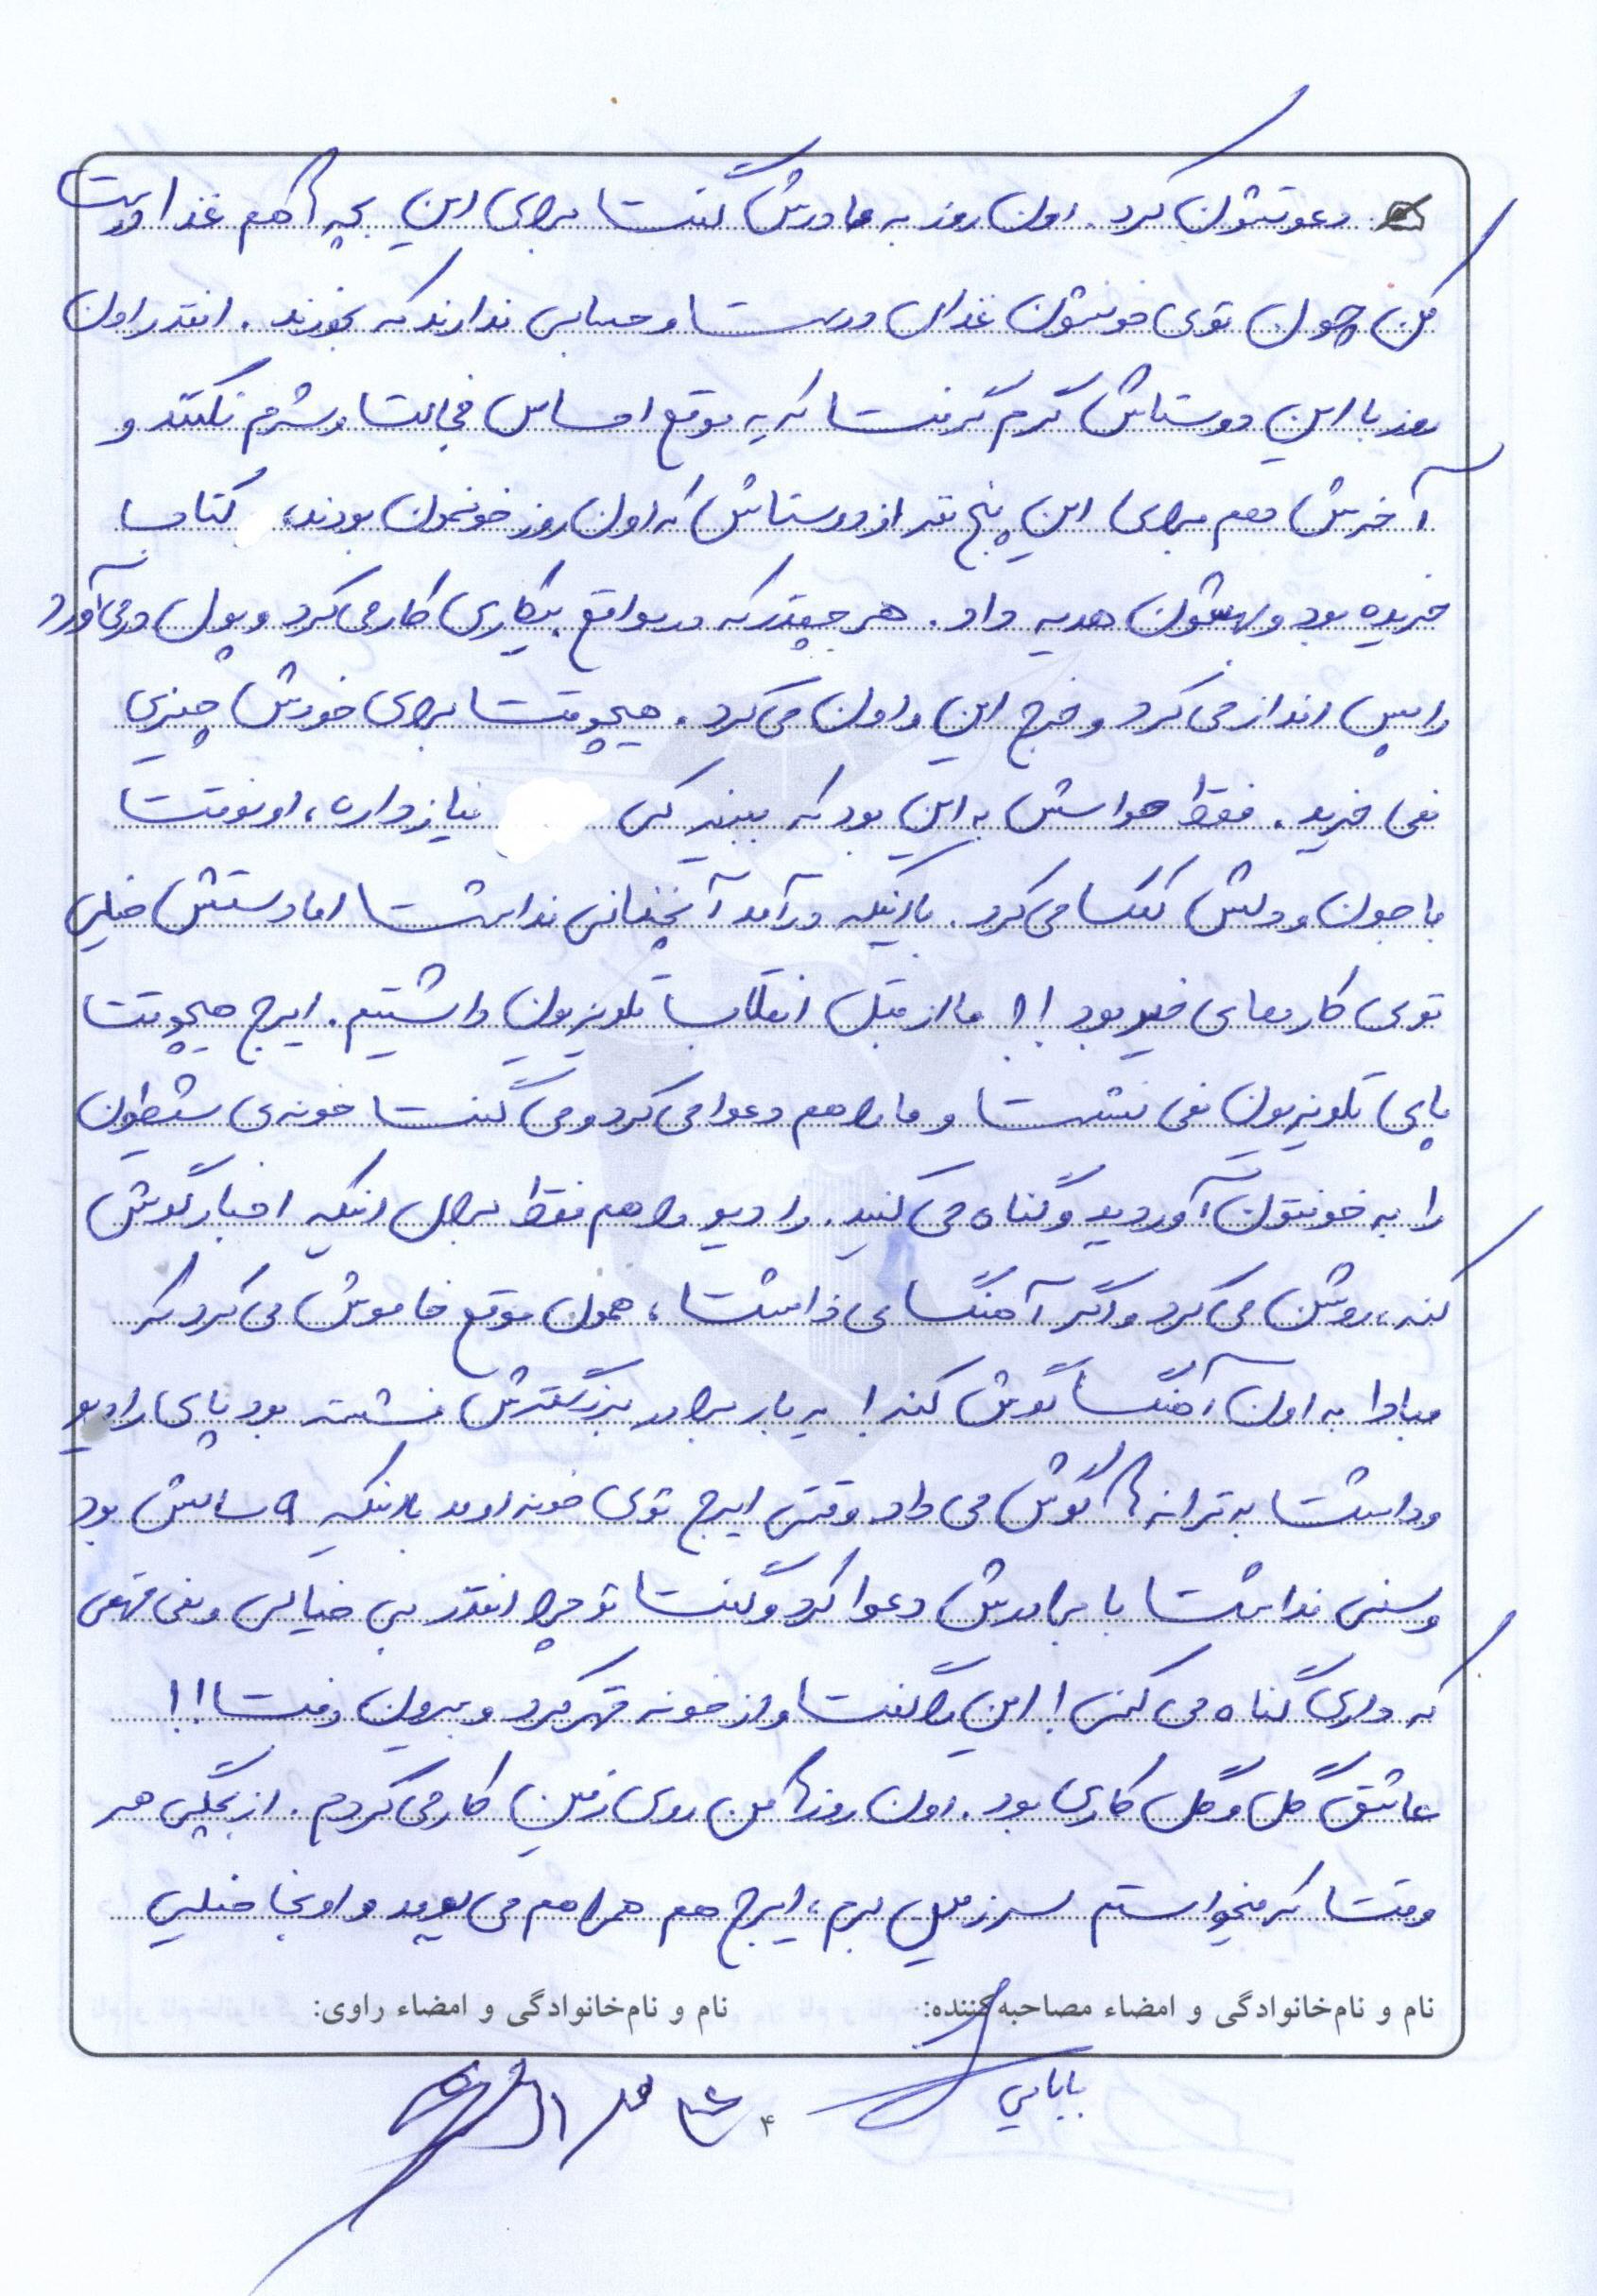 دعوتشون کرد. اون روز به مادرش گفت برای این بچه ها هم غذا درست
کن چون توی خونشون غذای درست و حسابی ندارند که بخورند. انقدر اون
روز با این دوستاش گرم گرفت که یه موقع احساس خجالت و شرم نکنند و
آخرش هم برای این پنج نفر از دوستاش که اون روز خونمون بودند، کتاب
خریده بود و بهشون هدیه داد. هر چقدر که در مواقع بیکاری کار می کرد و پول در می آورد
را پس انداز می کرد و خرج این و اون می کرد. هیچوقت برای خودش چیزی
نمی خرید. فقط حواسش به این بود که ببینه کی نیاز داره، اونوقت
با جون و دلش کمک می کرد. با اینکه درآمد آنچنانی نداشت اما دستش خیلی
توی کارهای خیر بود!! ما از قبل انقلاب تلویزیون داشتیم. ایرج هیچوقت
پای تلویزیون نمی نشست و ما را هم دعوا می کرد و می گفت خونه ی شیطون
را به خونتون آوردید و گناه می کنید. رادیو را هم فقط برای اینکه اخبار گوش
کنه، روشن می کرد و اگر آهنگ می ذاشت، همون موقع خاموش می کرد که
مبادا به اون آهنگ گوش کنه! یه بار برادر بزرگترش نشسته بود پای رادیو
و داشت به ترانه ها گوش می داد وقتی ایرج توی خونه اومد با اینکه ۹ سالش بود
و سنی نداشت با برادرش دعوا کرد و گفت تو چرا انقدر بی خیالی و نمی فهمی
که داری گناه می کنی! این را گفت و از خونه قهر کرد و بیرون رفت!!
عاشق گل و گل کاری بود. اون روزها من روی زمین کار می کردم. از بچگی هر
وقت که میخواستم سر زمین برم، ایرج هم همراهم می یومد و اونجا خیلی
نام و نام‌خانوادگی و امضاء مصاحبه‌کننده: نام و نام‌خانوادگی و امضاء راوی:
بابایی
۴